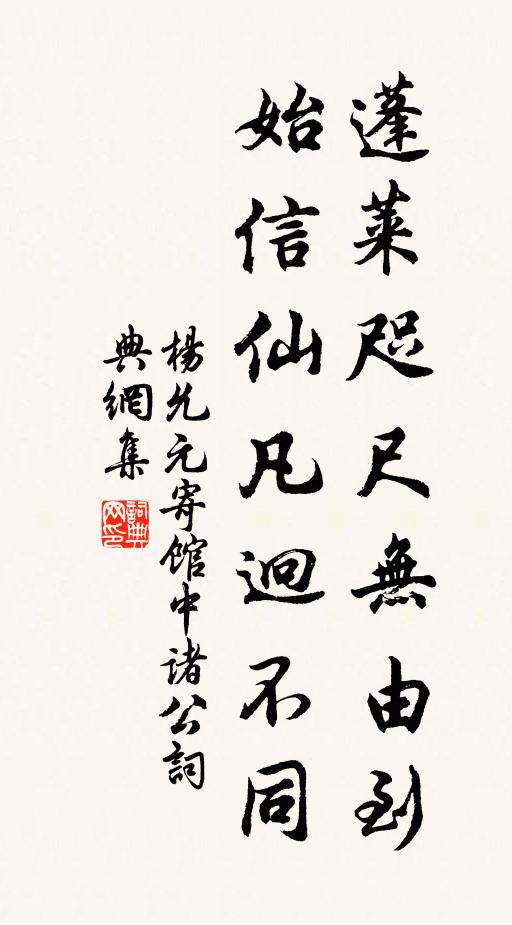 蓬萊咫尺無由到
始信仙凡迥不同
楊允元寄館中諸公詞
典網集
詞典
网印